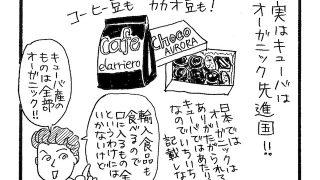 実はキューバは
オーガニック先進国!!
コーヒー豆も
カカオ豆も!
Café
elarriero
Choco
AURORA
日本では
オーガニックは
ありがたがられて
キューバではあたりまえ
なのでいちいち
記載しな
輸入食品も
食べるので
口に入るもの全
というわけには
いかないけど
キューバ産の
ものは全部
オーガニック!!